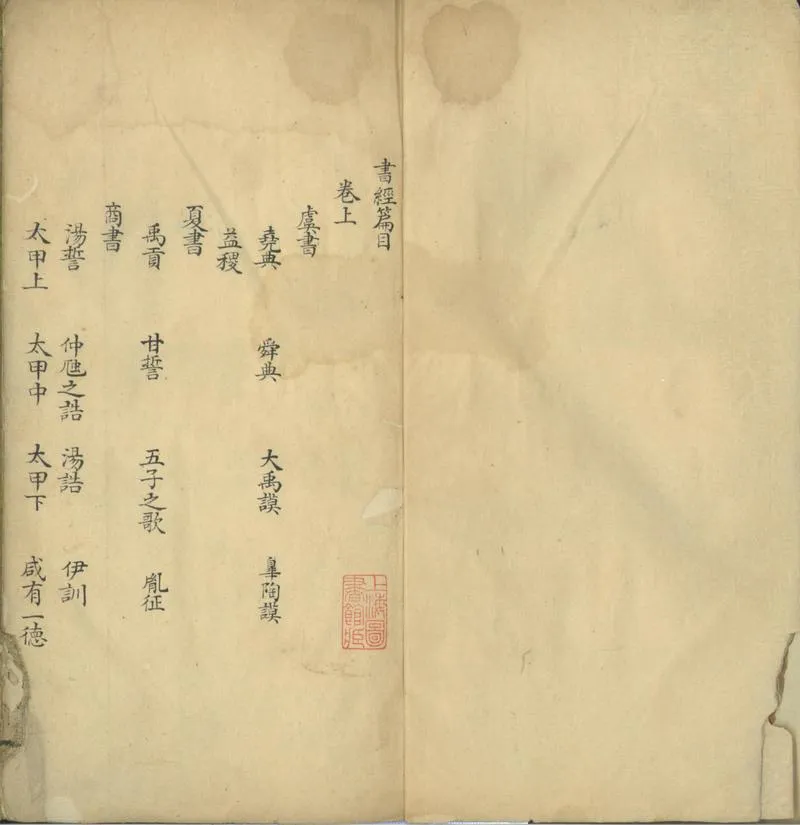 書經篇目
卷上
虞書
堯典 舜典 大禹謨 皋陶謨
益稷
夏書
禹貢 甘誓 五子之歌 胤征
商書
湯誓 仲虺之誥 湯誥 伊訓
太甲上 太甲中 太甲下 咸有一德
上海圖書館藏